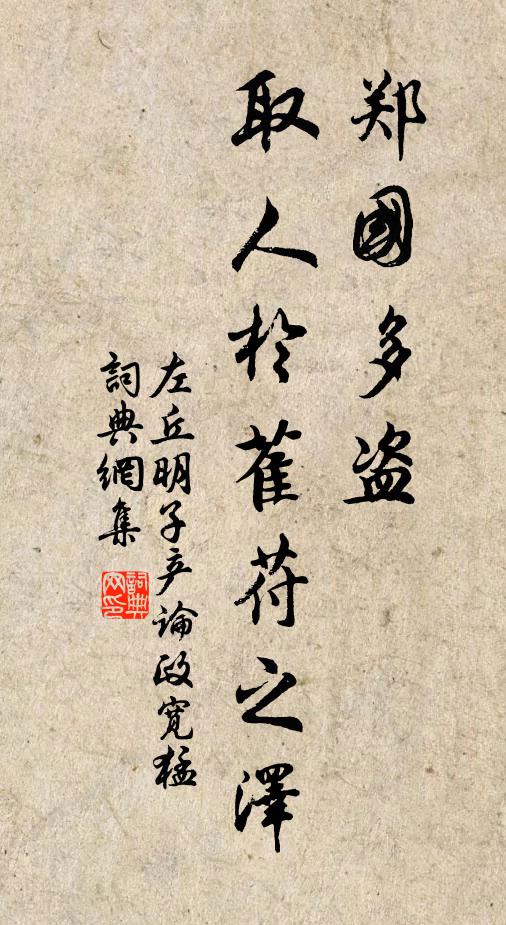 郑國多盗
取人於萑苻之澤
左丘明子产論政寬猛
詞典網集
詞典网印